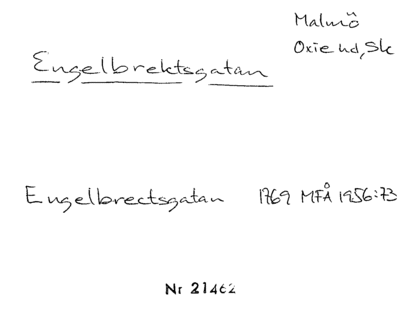 Malmö
Oxie hd, Sk
Engelbrektsgatan
Engelbrectsgatan 1769 MFÅ 1956:73
Nr 21462